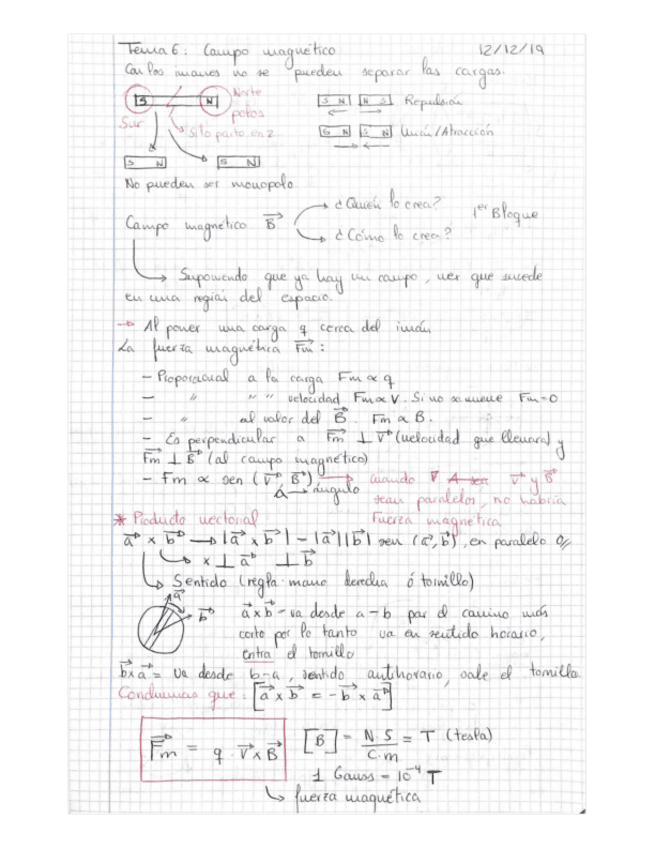 Tema 6: Campo magnético 12/12/19
Con los imanes no se pueden separar las cargas.
S N Norte S N N S Repulsión
polos
Sur Si lo parto en 2 S N S N Unión/Atracción
S N S N
No pueden ser monopolo
¿Quién lo crea?
Campo magnético B⃗ 1er Bloque
¿Cómo lo crea?
Suponiendo que ya hay un campo, ver que sucede
en una región del espacio.
→ Al poner una carga q cerca del imán
La fuerza magnética Fm⃗ :
- Proporcional a la carga Fm ∝ q
- " " " velocidad Fm ∝ V. Si no se mueve Fm=0
- " al valor del B⃗. Fm ∝ B.
- Es perpendicular a Fm⃗ ⊥ V⃗ (velocidad que llevara) y
Fm⃗ ⊥ B⃗ (al campo magnético)
- Fm ∝ sen (V⃗, B⃗) → cuando V⃗ y B⃗
ángulo sean paralelos, no habría
* Producto vectorial Fuerza magnética
a⃗ × b⃗ → |a⃗ × b⃗| = |a⃗||b⃗| sen (a⃗, b⃗), en paralelo 0
→ × ⊥ a⃗ ⊥ b⃗
→ Sentido (regla mano derecha ó tornillo)
a⃗ b⃗ a⃗×b⃗ - va desde a-b por el camino más
corto por lo tanto va en sentido horario,
entra el tornillo
b⃗×a⃗ = va desde b-a, sentido antihorario, sale el tornillo.
Concluimos que: [a⃗ × b⃗ = -b⃗ × a⃗]
Fm⃗ = q · V⃗×B⃗ [B] = N·S/C·m = T (tesla)
1 Gauss = 10⁻⁴ T
→ fuerza magnética